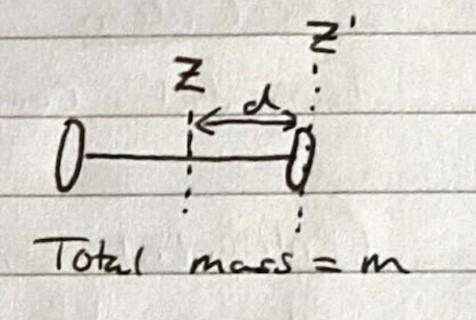 Z'
Z
d
Total mass = m